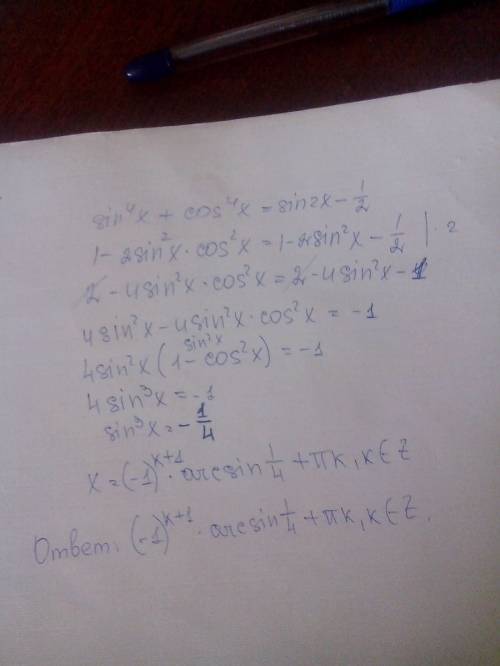 sin⁴x + cos⁴x = sin2x - 1/2
1 - 2sin²x · cos²x = 1 - 2sin²x - 1/2 | · 2
2 - 4sin²x · cos²x = 2 - 4sin²x - 1
4sin²x - 4sin²x · cos²x = -1
sin²x
4sin²x (1 - cos²x) = -1
4sin³x = -1
sin³x = -1/4
x = (-1)ᵏ⁺¹ · arcsin 1/4 + πk, k ∈ Z
Ответ: (-1)ᵏ⁺¹ · arcsin 1/4 + πk, k ∈ Z.